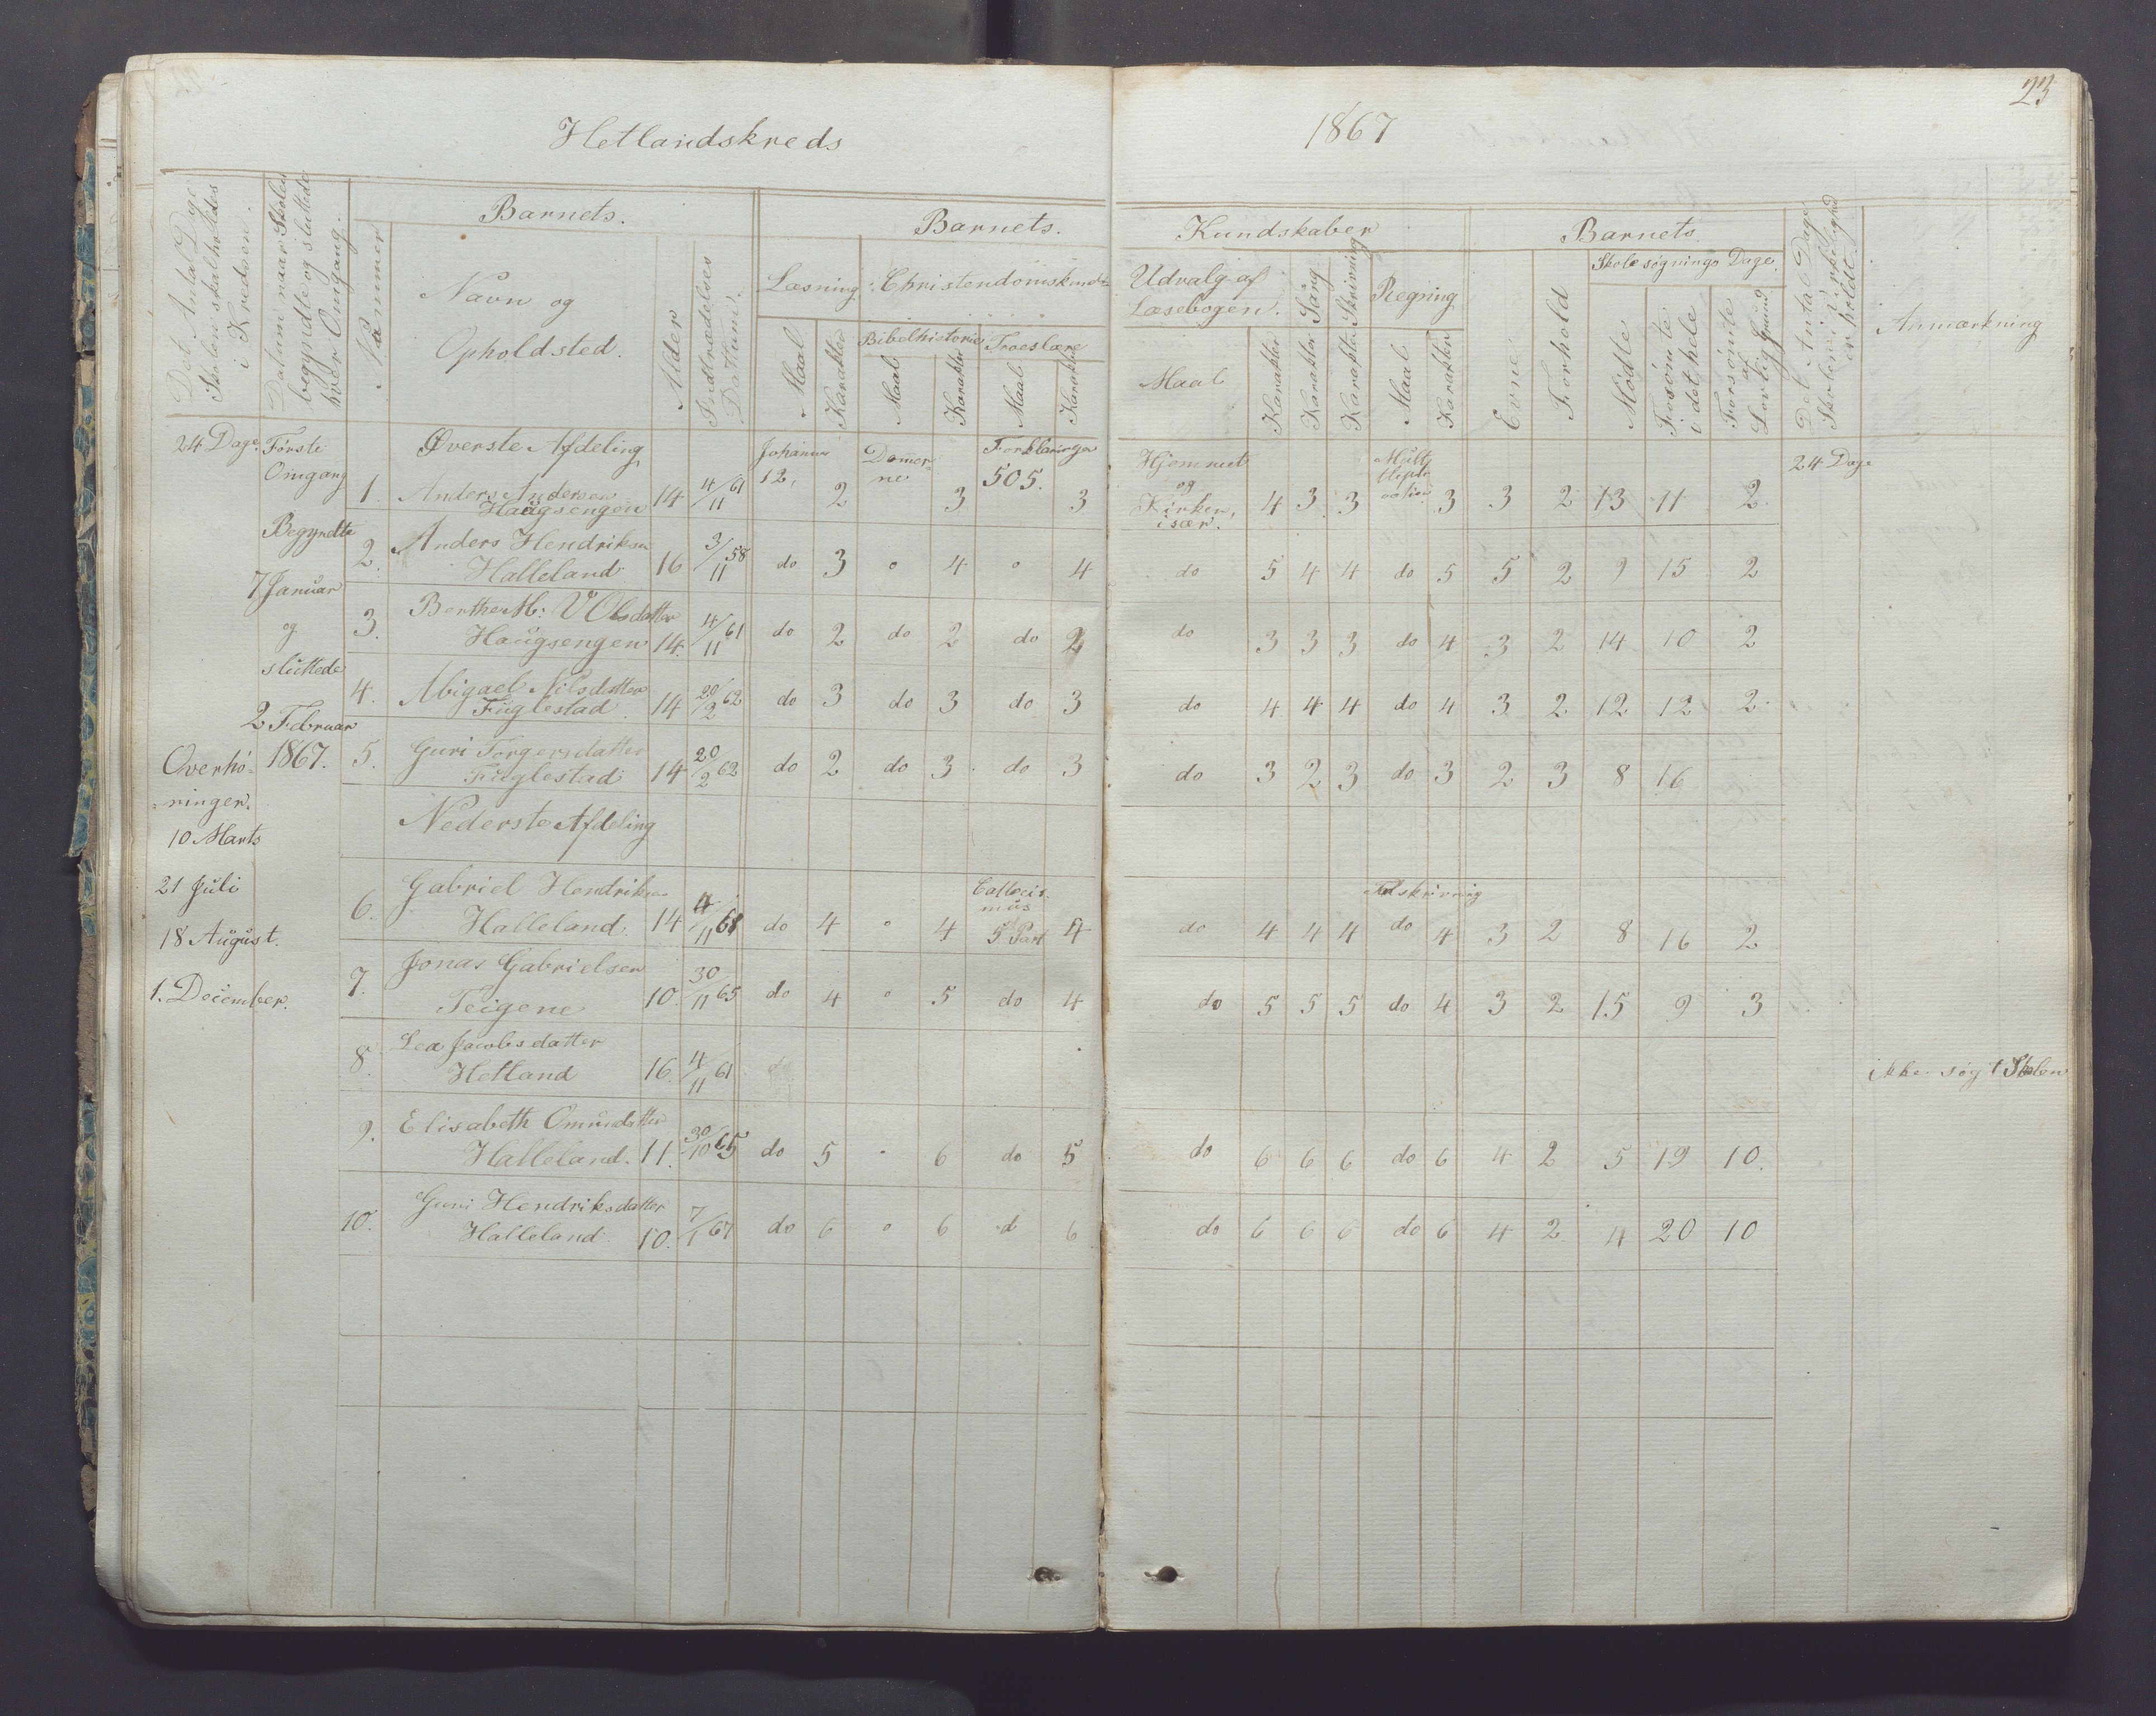 Hetlandskreds
1867
23
Det Antal Dage Skolen skal holdes i Kredsen.
Datum naar Skolen begyndte og sluttede hver Omgang.
Nummer
Barnets.
Navn og
Opholdsted.
Alder
Indtrædelses Dattum.
Barnets.
Kundskaber
Læsning
Maal
Karakter
Christendomskunds-
Bibelhistorie
Maal
Karakter
Troeslære
Maal
Karakter
Udvalg af
Læsebogen.
Maal
Karakter
Sang
Karakter
Skrivning
Karakter
Regning
Maal
Karakter
Barnets
Evne
Forhold
Skolesøgnings Dage.
Mødte
Forsømte i det hele
Forsømte af Lovlig Grund
Det Antal Dage Skolen i Virkelighed er holdt.
Anmærkning
24 Dage.
Overhø-
ringer.
10 Marts
21 Juli
18 August.
1. December.
Første
Omgang
Begyndte
7 Januar
og
sluttede
2 Februar
1867.
Øverste Afdeling
1. Anders Andersen
Haugsengen 14 4/11 61 Johannes 12, 2 Domer-ne 3 Forklaringen 505. 3 Hjemmet og Kirken, især. 4 3 3 Multiplication 3 3 2 13 11 2 24 Dage
2. Anders Hendriksen
Halleland 16 3/11 58 do 3 " 4 " 4 do 5 4 4 do 5 5 2 9 15 2
3. Berthe M: V Olsdatter
Haugsengen 14. 4/11 61 do 2 do 2 do 2 do 3 3 3 do 4 3 2 14 10 2
4. Abigael Nilsdatter
Fuglestad 14 20/2 62 do 3 do 3 do 3 do 4 4 4 do 4 3 2 12 12 2
5. Guri Torgersdatter
Fuglestad 14 20/2 62 do 2 do 3 do 3 do 3 2 3 do 3 2 3 8 16
Nederste Afdeling
6. Gabriel Hendriksen
Halleland. 14 4/11 61 do 4 " 4 Catecismus 5 Part 4 do 4 4 4 Talskrivnig do 4 3 2 8 16 2
7. Jonas Gabrielsen
Teigene 10. 30/11 65 do 4 " 5 do 4 do 5 5 5 do 4 3 2 15 9 3
8. Lea Jacobsdatter
Hetland 16 4/11 61 ikke søgt Skolen
9. Elisabeth Omundsdatter
Halleland. 11. 30/10 65 do 5 " 6 do 5 do 6 6 6 do 6 4 2 5 19 10.
10. Guri Hendriksdatter
Halleland 10. 7/1 67 do 6 " 6 d 6 do 6 6 6 do 6 4 2 4 20 10